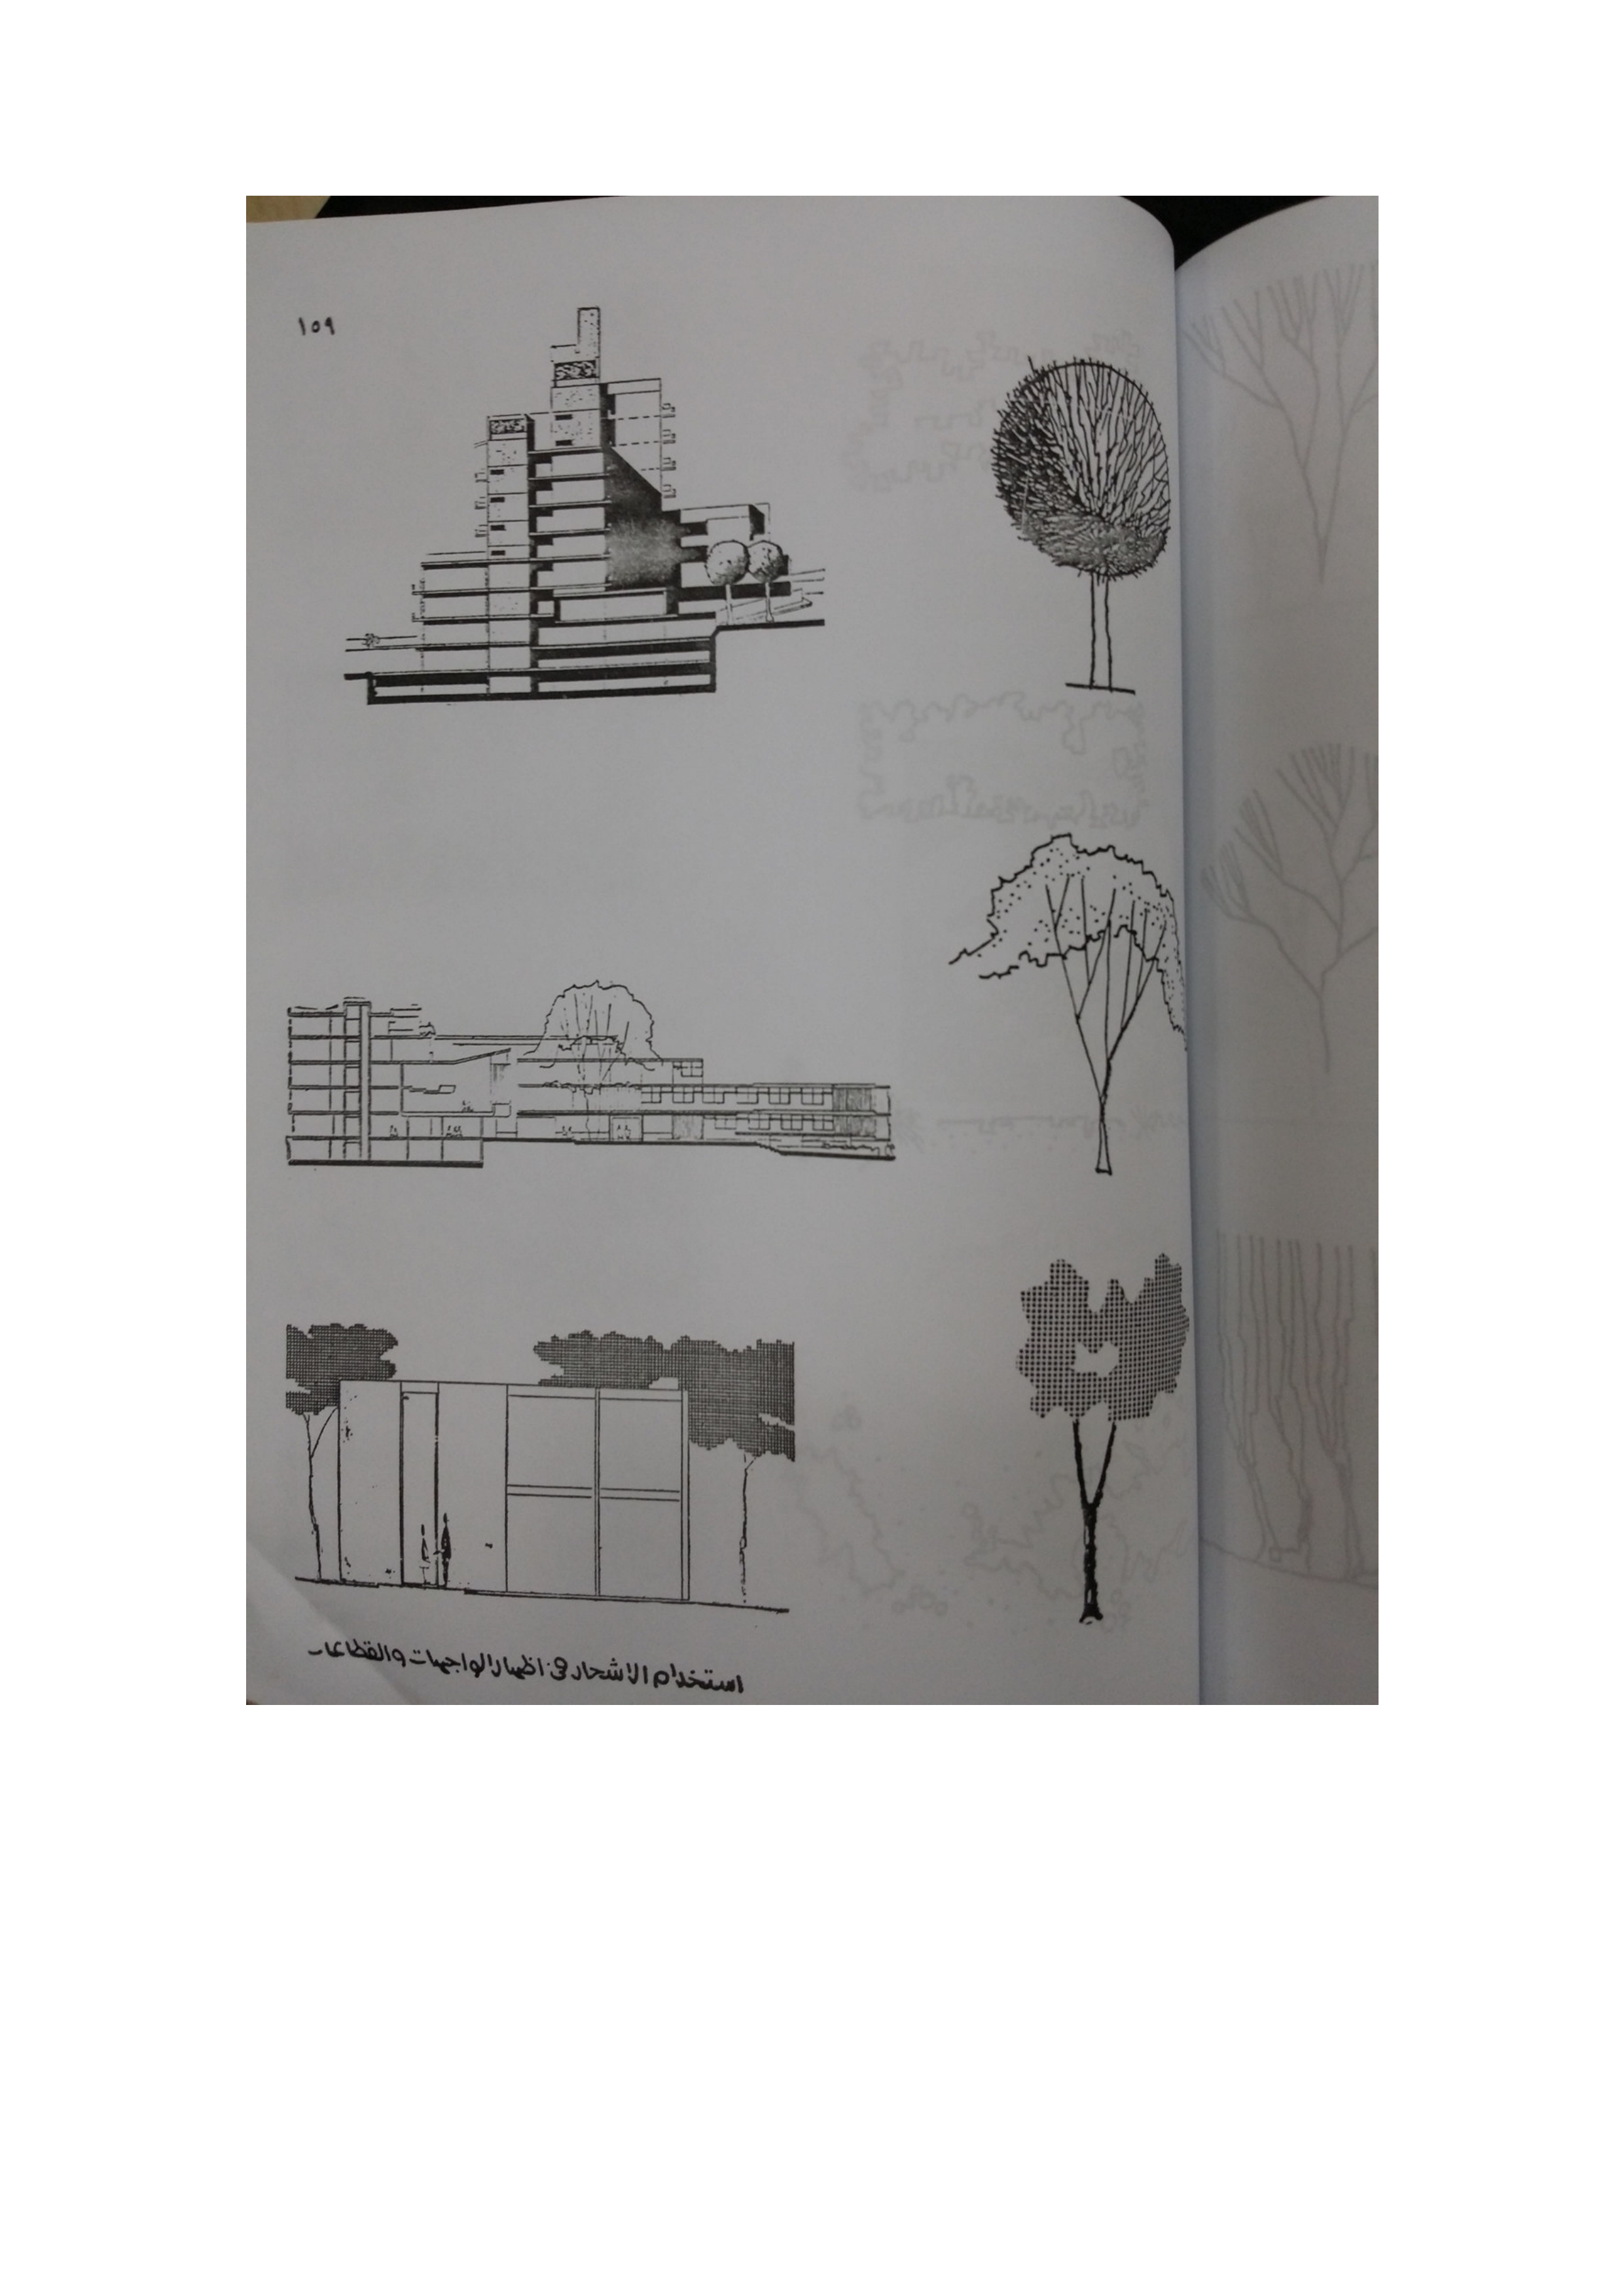 ١٥٩
استخدام الاشجار في اظهار الواجهات والقطاعات